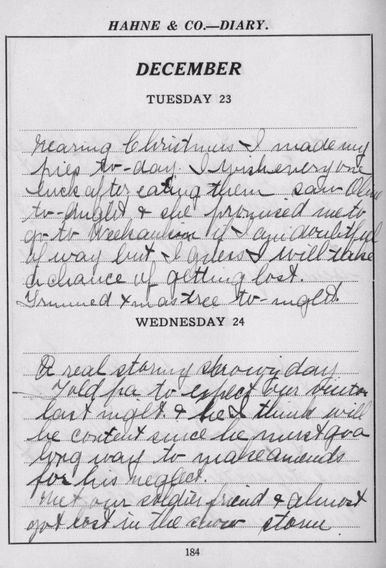 HAHNE & CO.—DIARY.
DECEMBER
TUESDAY 23
Nearing Christmas I made my
pies to-day. I wish every one
luck after eating them saw Olive
to-night & she promised me to
go to Weehawken if I am doubtful
of way but I guess I will take
a chance of getting lost.
Trimmed Xmas tree to-night.
WEDNESDAY 24
A real stormy snowy day
Told pa to expect our visitor
last night & he I think will
be content since he must go a
long way to make amends
for his neglect.
Met our soldier friend & almost
got lost in the snow storm
184